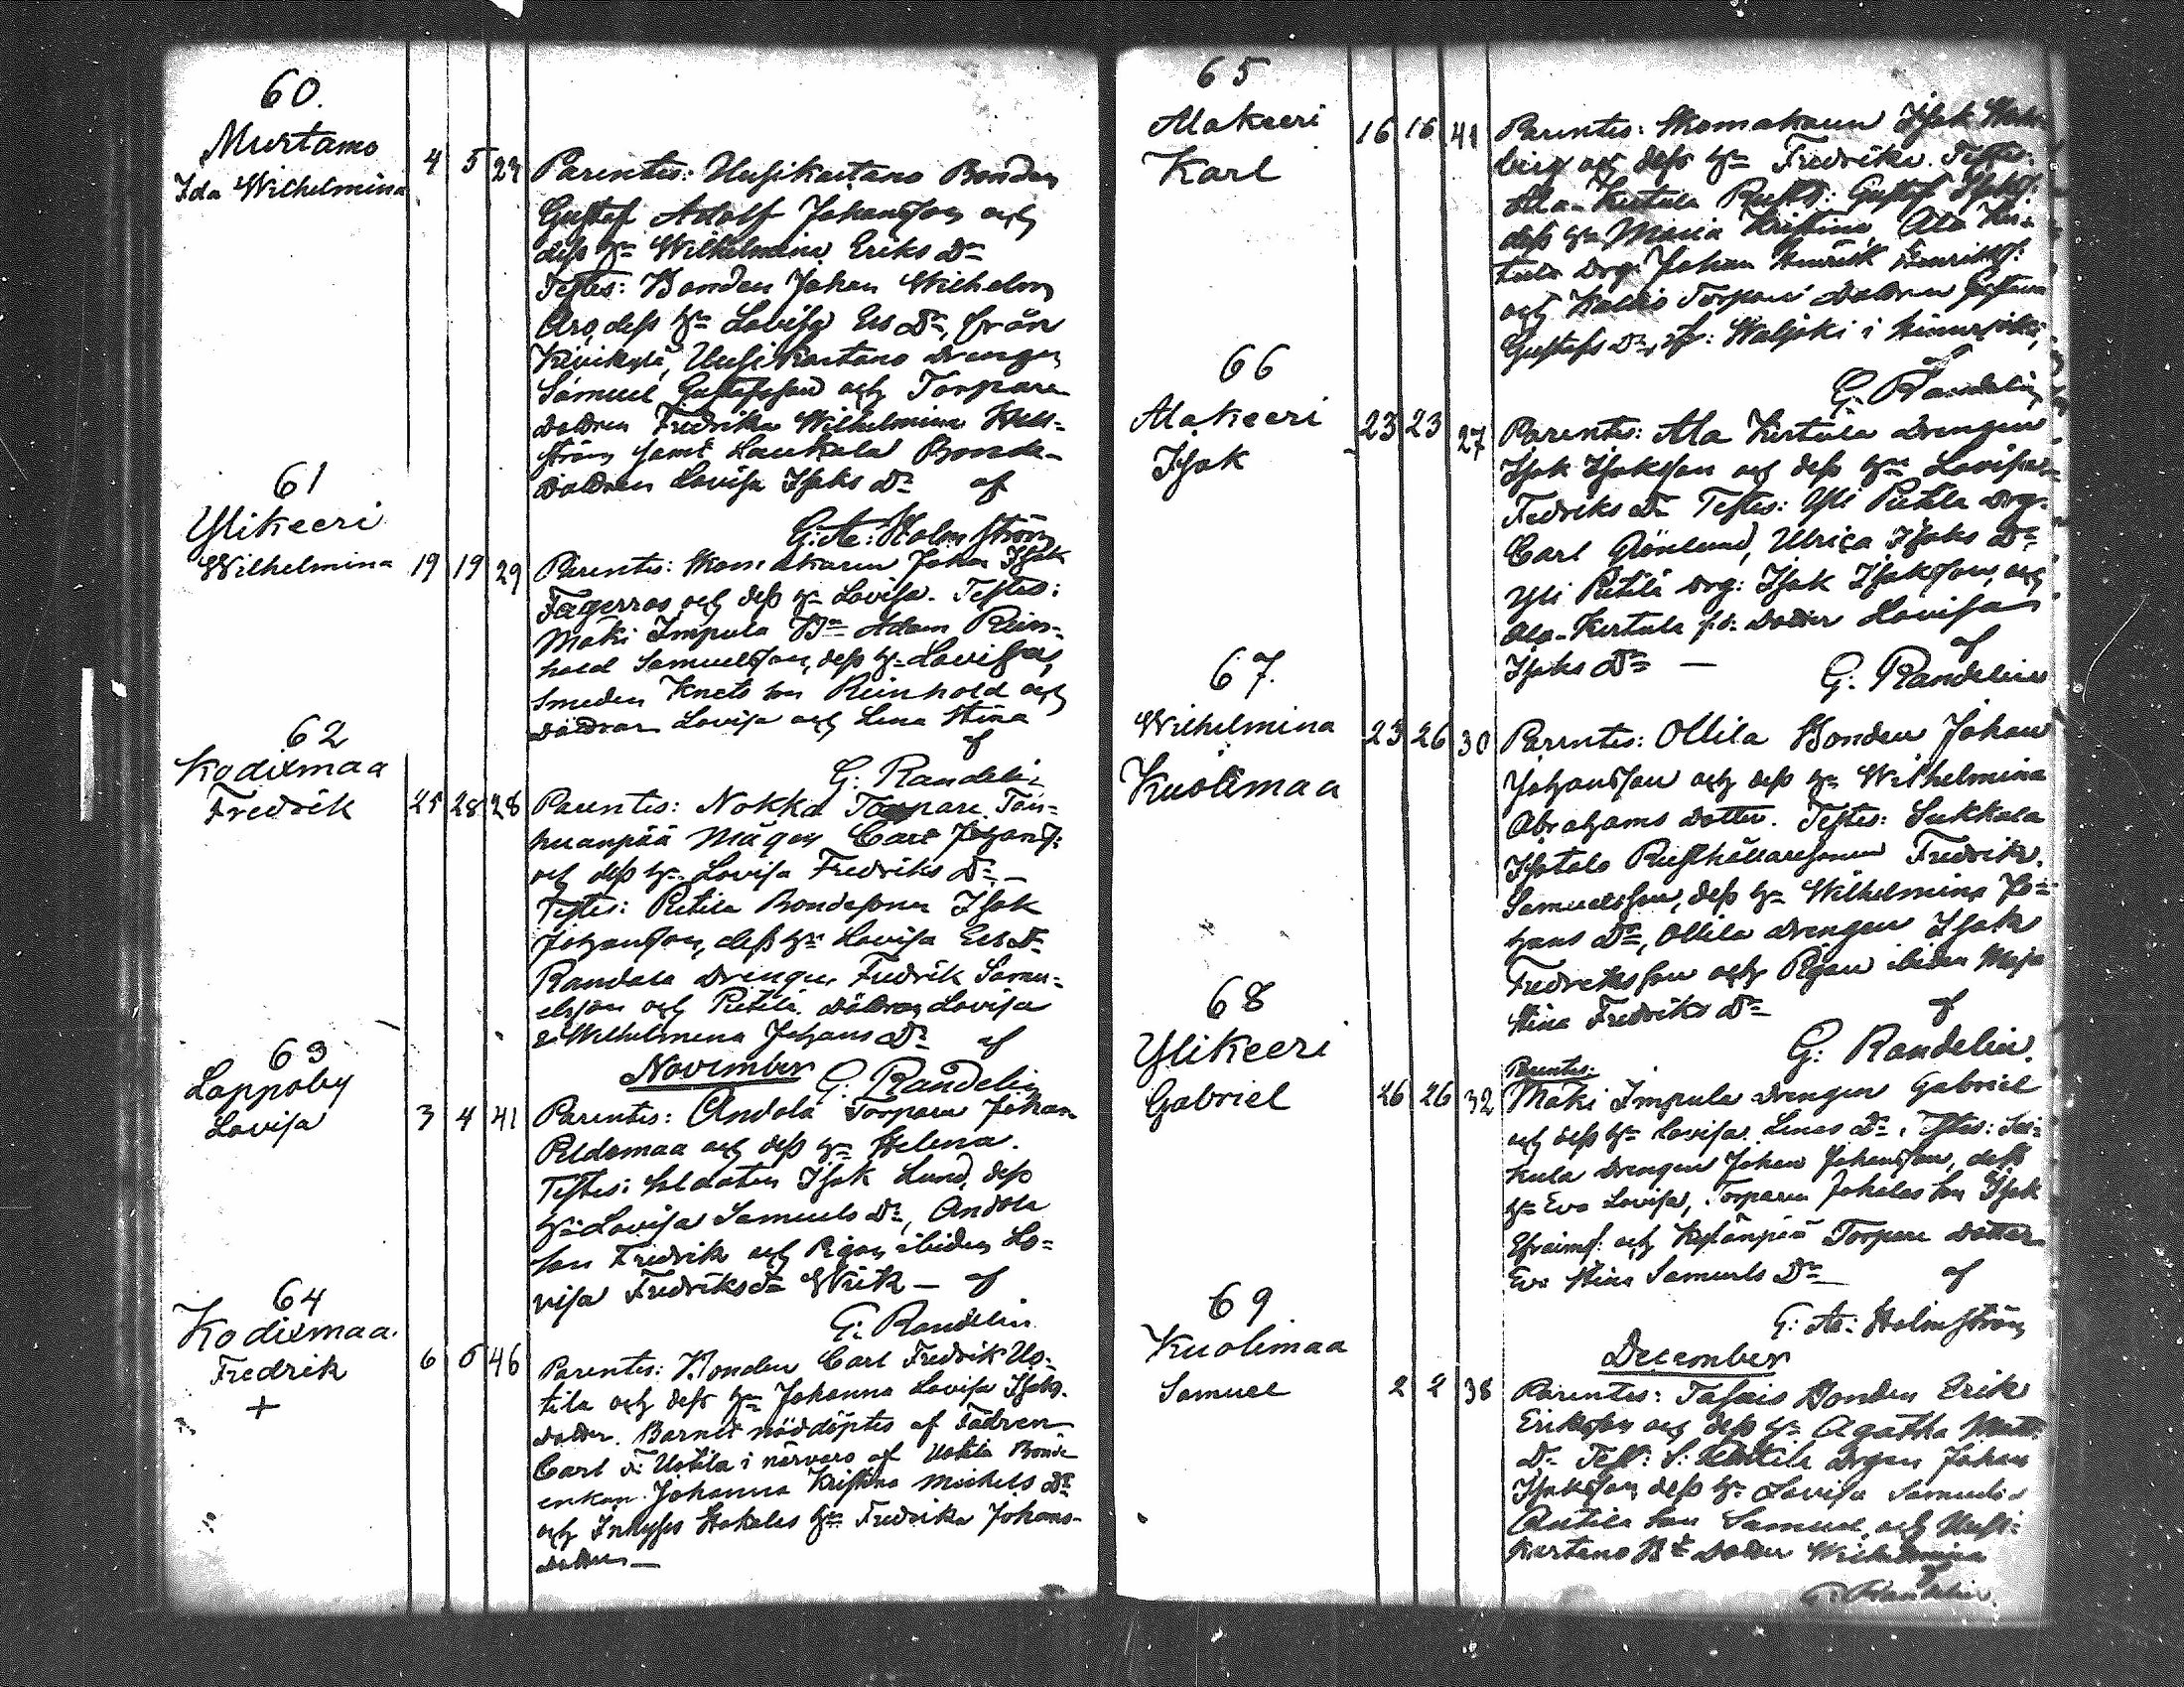 60.
Murtamo
Ida Wilhelmina
4 5 29 Parentes: Uusikartano Bonden
Gustaf Adolf Johansson och
dess h̄u Wilhelmina Eriks Dr
Testes: Bonden Johan Wilhelm
Aro, dess h̄u Lovisa Ers Dr, från
Uusikartano Drengen
Samuel Gustafsson och Torpare
dottren Fredrika Wilhelmina Hell-
ström samt Laukola Bonde-
Dottren Lovisa Isaks Dr af
G: A: Holmström
61
Ylikeeri
Wilhelmina
19 19 29 Parentes: Skomakaren Johan Isak
Fagerroos och dess h̄u Lovisa. Testes:
Mäki Impola Bn Adam Rein-
hold Samuelsson, dess h̄u Lovisa,
Smeden Knets son Reinhold och
döttrar Lovisa och Lena Stina
af
G: Randelin
62
Kodixmaa
Fredrik
25 28 28 Parentes: Nokka Torpare Tan-
huanpää Mågen Carl Johans:
och dess h̄u Lovisa Fredriks Dr –
Testes: Pietilä Bondesonen Isak
Johansson, dess h̄u Lovisa Ers Dr
Randala Drengen Fredrik Samu-
elsson och Pietilä döttrar Lovisa
& Wilhelmina Johans Dr af
November G: Randelin
63
Lappoby
Lovisa
3 4 41 Parentes: Andola Torparen Johan
Peldomaa och dess h̄u Helena.
Testes: Soldaten Isak Lund, dess
h̄u Lovisa Samuels Dr, Andola
son Fredrik och Pigan ibidem Lo-
visa Fredriksdr Wirk – af
G: Randelin
64
Kodixmaa.
Fredrik
+
6 6 46 Parentes: Bonden Carl Fredrik Uo-
tila och dess h̄u Johanna Lovisa Isaks
dotter. Barnet nöddöptes af Fadren
Carl F: Uotila i närvaro af Uotila Bonde
enkan Johanna Kristina Mickels Dr
och Inhyses Hakalas h̄u Fredrika Johans-
dotter –
65
Alakeeri
Karl
16 16 41 Parentes: Skomakaren Isak
berg och dess h̄u Fredrika. Testes:
Ala-Kertula Rusth: Gustaf Isaks:
dess h̄u Maria Kristina, Ala Ker-
tula Drg: Johan Henrik Henriks:
och Torpare Dottren Gustava
Gustafs Dr, fr: Waljoki i Hinnerjoki,
af
G. Randelin
66
Alakeeri
Isak
23 23 27 Parentes: Ala Kertula Drengen
Isak Isaksson och dess h̄u Lovisa
Fredriks Dr Testes: Yli Pietilä Drg:
Carl Grönlund, Ulrica Isaks Dr
Yli Pietilä Drg: Isak Isaksson, och
Ala-Kertula Dotter Lovisa
Isaks Dr – af
G: Randelin
67.
Wilhelmina
Kuolimaa
23 26 30 Parentes: Ollila Bonden Johan
Johansson och dess h̄u Wilhelmina
Abrahams dotter. Testes: Sukkala
Isotalo Rusthållaresonen Fredrik
Samuelsson, dess h̄u Wilhelmina Jo-
hans Dr, Ollila Drengen Isak
Fredriksson och Pigan ibidem Maja
Stina Fredriks Dr af
G: Randelin.
68
Ylikeeri
Gabriel
26 26 32 Parentes:
Mäki Impola Drengen Gabriel
och dess h̄u Lovisa Dr. Testes:
kula Drengen Johan Johansson, dess
h̄u Eva Lovisa, Torparen Jokelas son Isak
Efraims: och Kylänpää Torpare dotter
Eva Stina Samuels Dr af
G: A: Holmström
December
69
Kuolimaa
Samuel
2 2 38 Parentes: Bonden Erik
Eriksson och dess h̄u Agatha Matts
Dr Test: S: Drgen Johan
Isaksson, dess h̄u Lovisa Samuels
Antila son Samuel och Uusi-
kartano Dotter Wilhelmina
af
G: Randelin.